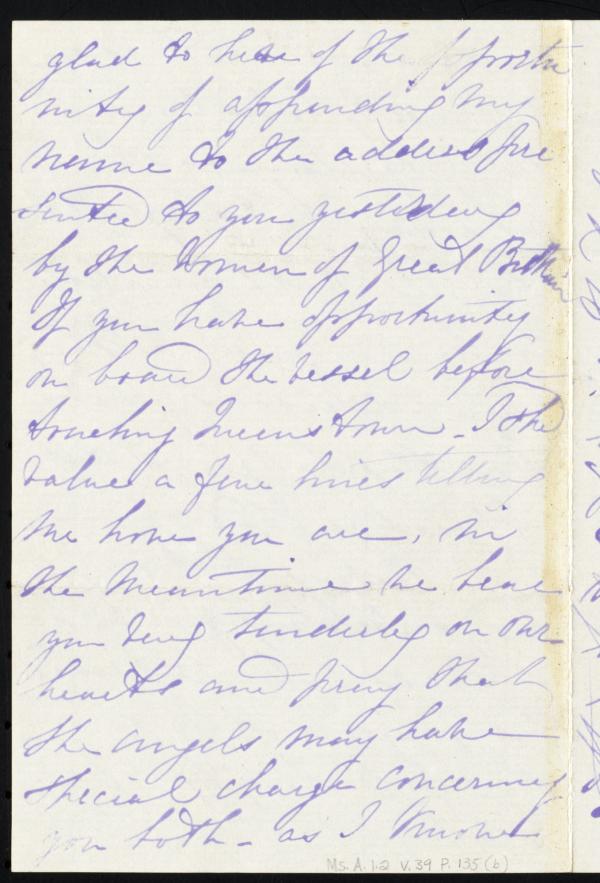 glad to hear of the opportu
nity of appending my
name to the address pre
sented to you yesterday
by the women of Great Britain
If you have opportunity
on board the vessel before
touching Queenstown - I shd
value a few lines telling
me how you are, in
the meantime we bear
you very tenderly on our
hearts and pray that
the angels may have
special charge concerning
you both - as I know
Ms. A. 1.2 V. 39 P. 135 (b)